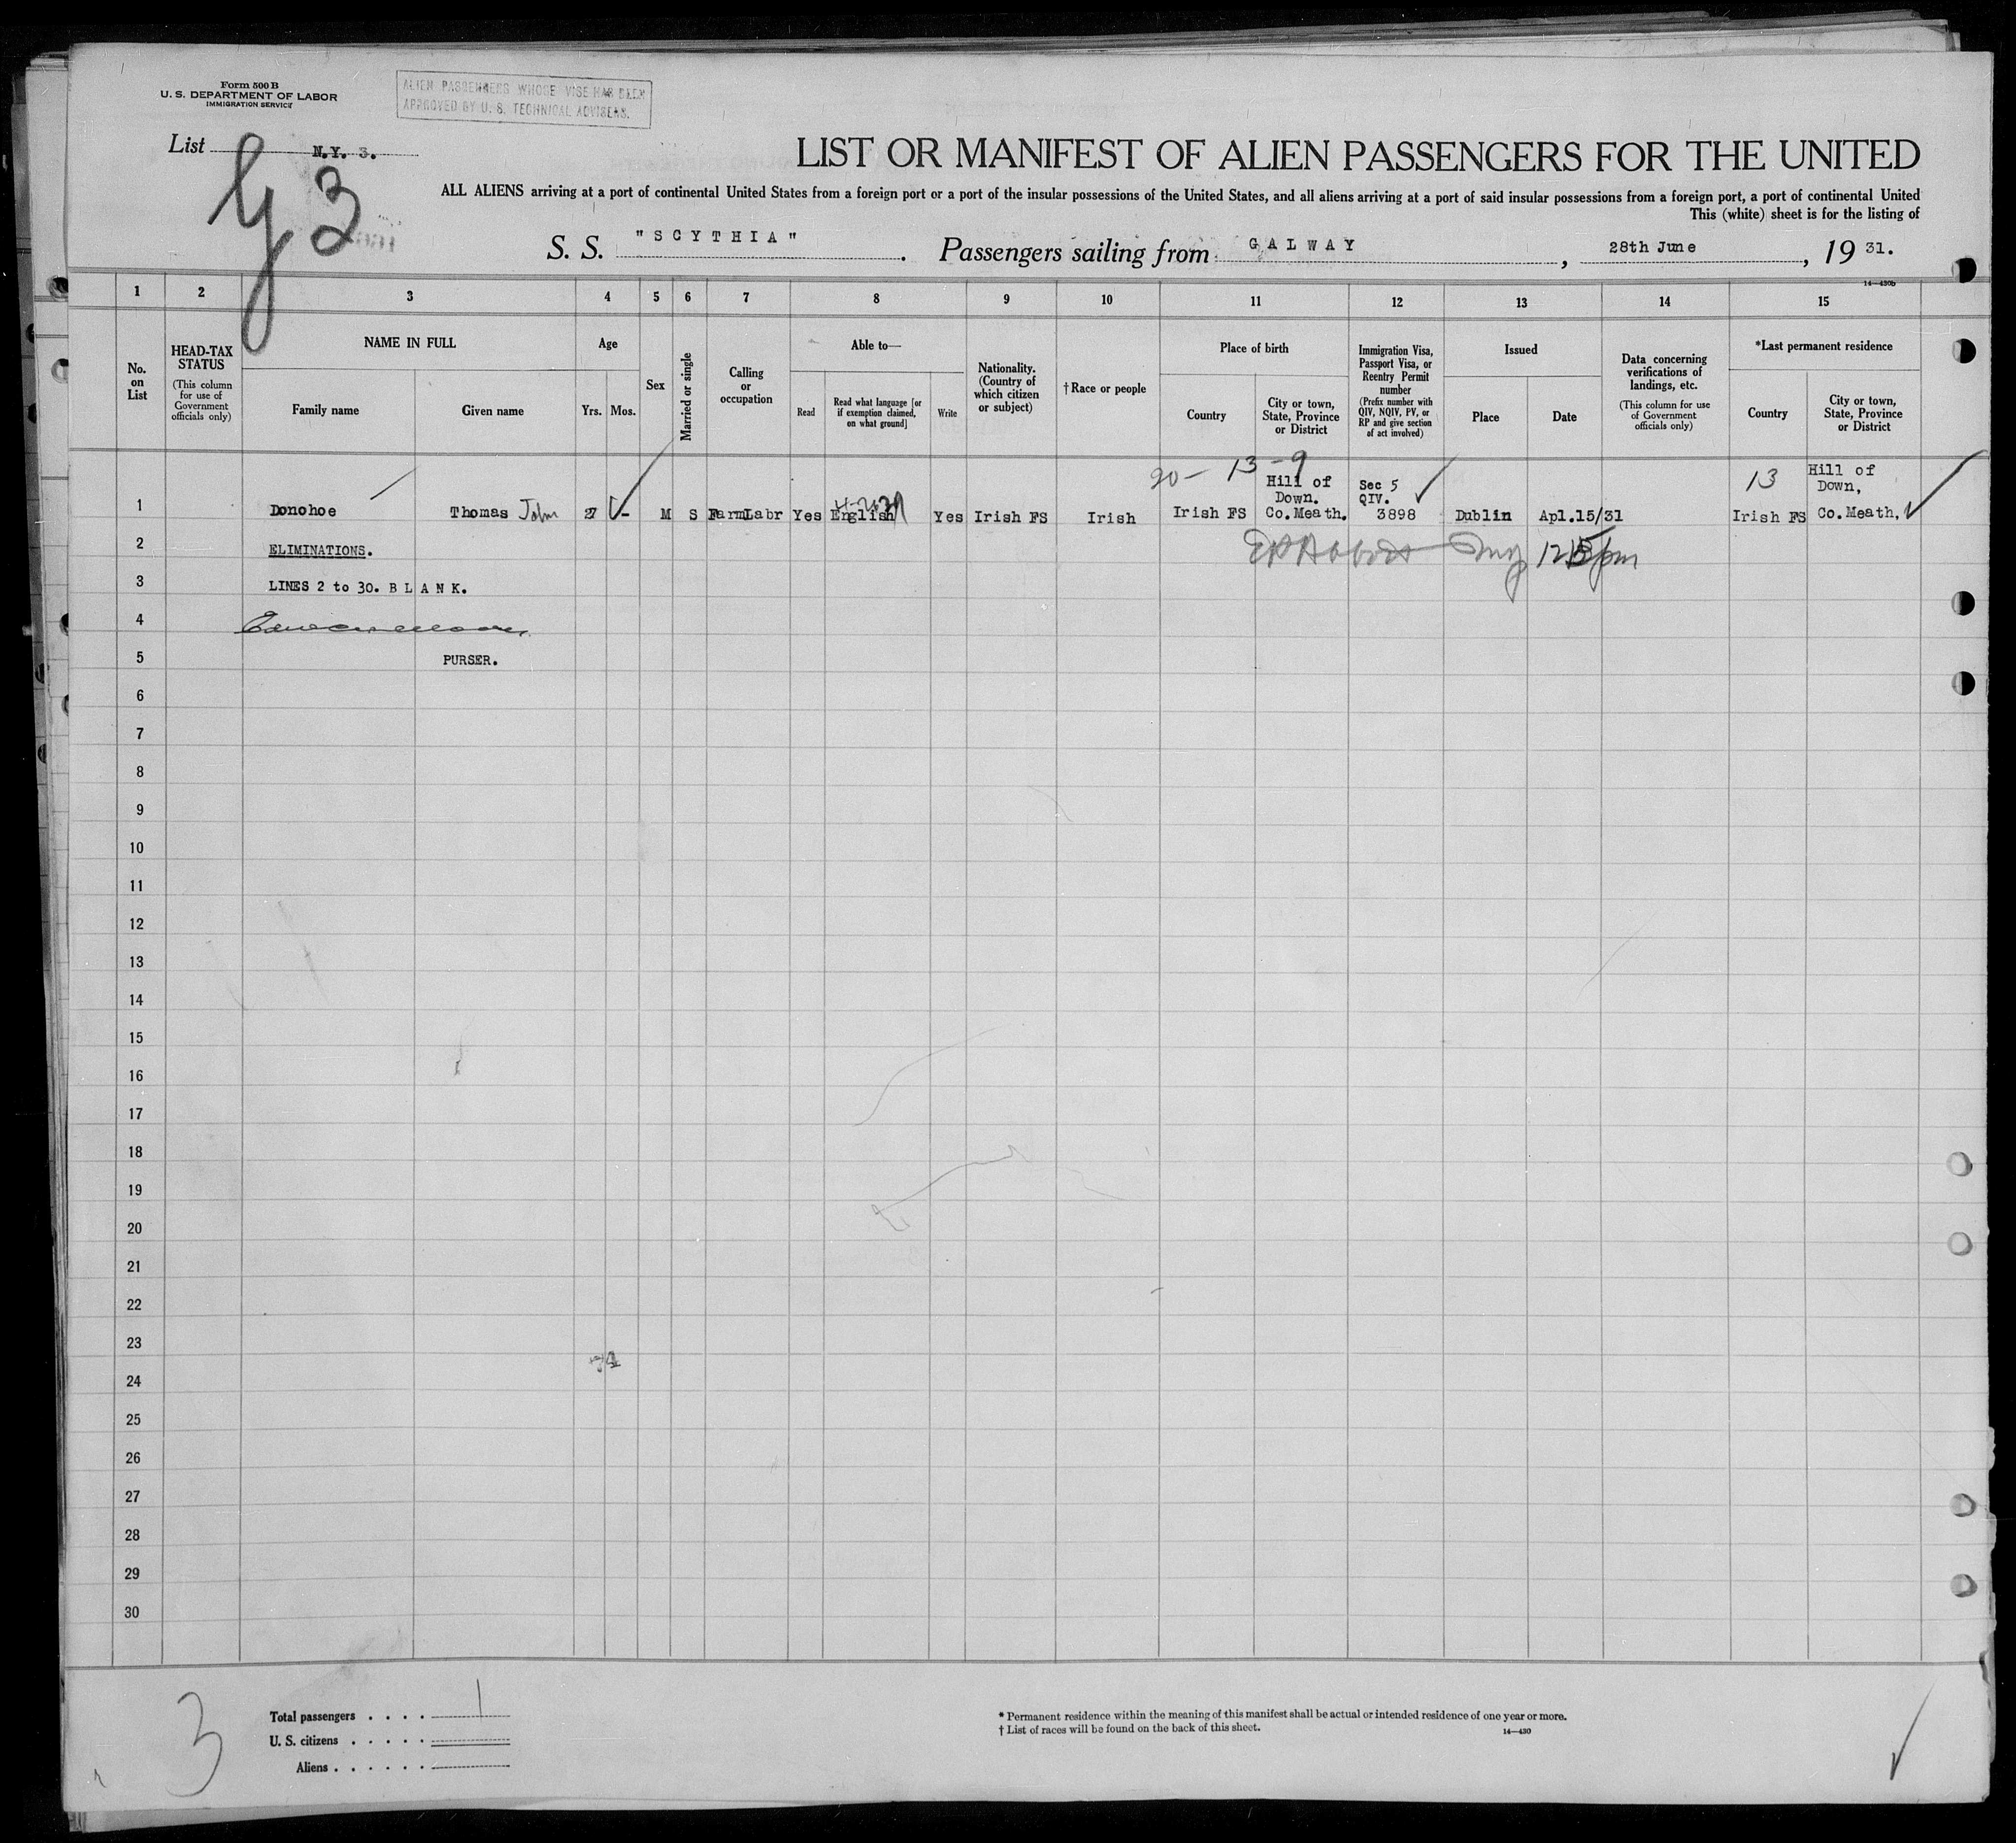 Form 500 B
U. S. DEPARTMENT OF LABOR
IMMIGRATION SERVICE
ALIEN PASSENGERS WHOSE VISE HAS BEEN
APPROVED BY U. S. TECHNICAL ADVISERS.
List N.Y. 3.
G 3
LIST OR MANIFEST OF ALIEN PASSENGERS FOR THE UNITED
ALL ALIENS arriving at a port of continental United States from a foreign port or a port of the insular possessions of the United States, and all aliens arriving at a port of said insular possessions from a foreign port, a port of continental United
This (white) sheet is for the listing of
S. S. "SCYTHIA". Passengers sailing from GALWAY, 28th June, 19 31.
14—430b
1 2 3 4 5 6 7 8 9 10 11 12 13 14 15
No. on List
HEAD-TAX STATUS
(This column for use of Government officials only)
NAME IN FULL
Family name
Given name
Age
Yrs. Mos.
Sex
Married or single
Calling or occupation
Able to—
Read
Read what language [or if exemption claimed, on what ground]
Write
Nationality. (Country of which citizen or subject)
†Race or people
Place of birth
Country
City or town, State, Province or District
Immigration Visa, Passport Visa, or Reentry Permit number
(Prefix number with QIV, NQIV, PV, or RP and give section of act involved)
Issued
Place
Date
Data concerning verifications of landings, etc.
(This column for use of Government officials only)
*Last permanent residence
Country
City or town, State, Province or District
20- 13-9 13
Hill of Down. Sec 5 QIV. Hill of Down,
1 Donohoe Thomas John 27 - M S FarmLabr Yes English Yes Irish FS Irish Irish FS Co.Meath. 3898 Dublin Apl.15/31 Irish FS Co.Meath,
2 ELIMINATIONS.
3 LINES 2 to 30. BLANK.
4
5 PURSER.
6
7
8
9
10
11
12
13
14
15
16
17
18
19
20
21
22
23
24
25
26
27
28
29
30
3
Total passengers . . . . 1
U. S. citizens . . . . .
Aliens . . . . . .
* Permanent residence within the meaning of this manifest shall be actual or intended residence of one year or more.
† List of races will be found on the back of this sheet.
14—430